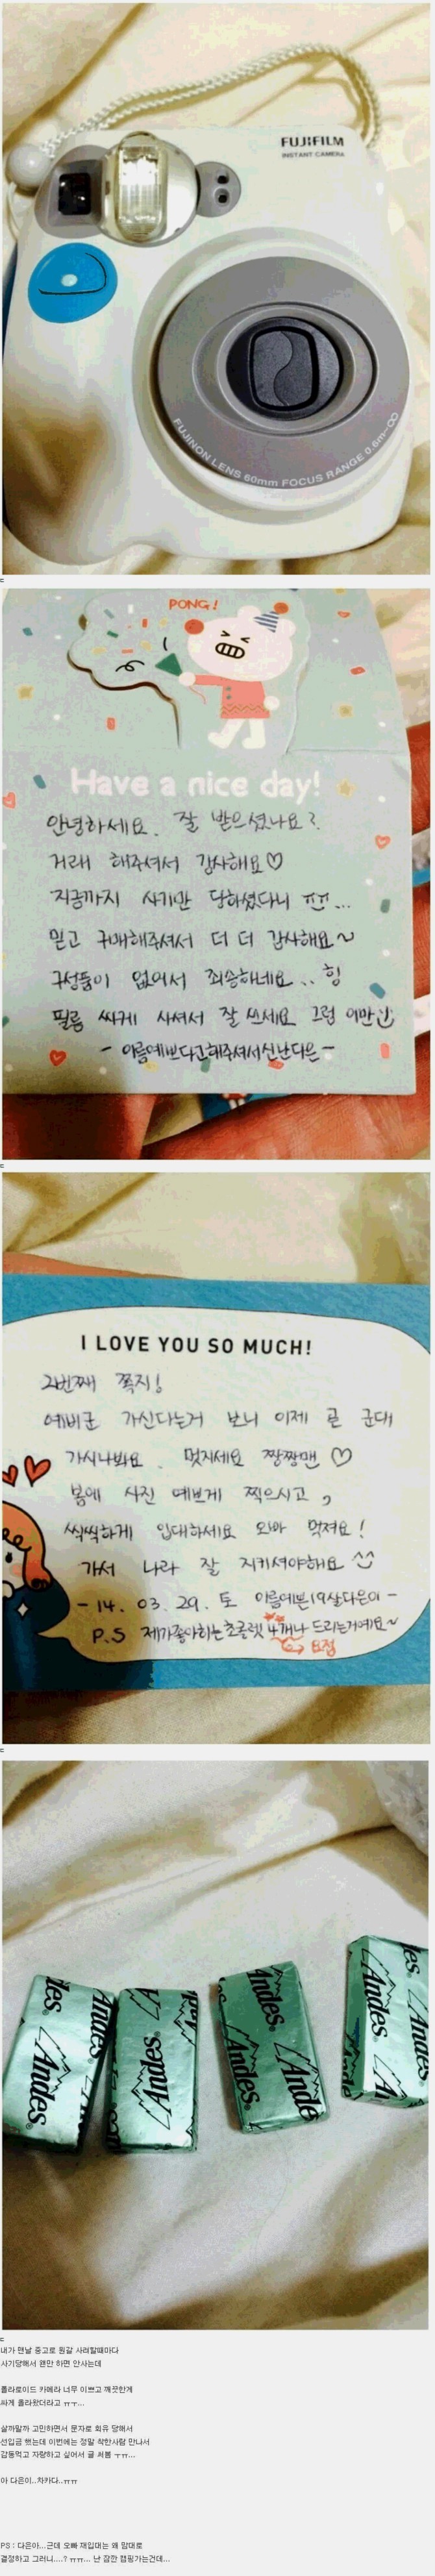 FUJIFILM
INSTANT CAMERA
FUJINON LENS 60mm FOCUS RANGE 0.6m-∞
PONG!
Have a nice day!
안녕하세요. 잘 받으셨나요?
거래 해주셔서 감사해요♡
지금까지 사기만 당하셨다니 ㅠㅠ...
믿고 구매해주셔서 더 더 감사해요~
구성품이 없어서 죄송하네요.. 힝
필름 싸게 사셔서 잘 쓰세요 그럼 이만
- 이름예쁘다고해주셔서신난다은 -
I LOVE YOU SO MUCH!
2번째 쪽지!
예비군 가신다는거 보니 이제 곧 군대
가시나봐요. 멋지세요 짱짱맨 ♡
봄에 사진 예쁘게 찍으시고,
씩씩하게 입대하세요 오빠 멋져요!
가서 나라 잘 지키셔야해요 ^^
- 14. 03. 29. 토 이름예쁜19살다은이 -
P.S 제가좋아하는초콜렛 4개나 드리는거예요~
요점
Andes
Andes
Andes
Andes
Andes
Andes
Andes
내가 맨날 중고로 뭔갈 사려할때마다
사기당해서 웬만 하면 안사는데
폴라로이드 카메라 너무 이쁘고 깨끗한게
싸게 올라왔더라고 ㅠㅜ...
살까말까 고민하면서 문자로 회유 당해서
선입금 했는데 이번에는 정말 착한사람 만나서
감동먹고 자랑하고 싶어서 글 써봄 ㅜㅠ...
아 다은이..차카다..ㅠㅠ
PS : 다은아...근데 오빠 재입대는 왜 맘대로
결정하고 그러니....? ㅠㅠ... 난 잠깐 캠핑가는건데...